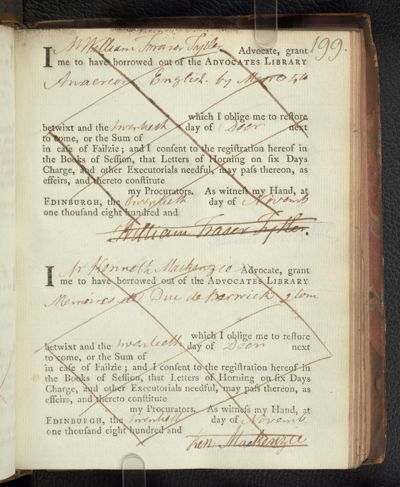 199.
I Mr William Fraser Tytler Advocate, grant
me to have borrowed out of the ADVOCATES LIBRARY
Anacreon English. by Moore 4to
which I oblige me to reſtore
betwixt and the twentieth day of Decr next
to come, or the Sum of
in caſe of Failzie; and I conſent to the regiſtration hereof in
the Books of Seſſion, that Letters of Horning on ſix Days
Charge, and other Executorials needful, may paſs thereon, as
effeirs, and thereto conſtitute
my Procurators. As witneſs my Hand, at
EDINBURGH, the twentieth day of Novemb
one thouſand eight hundred and
William Fraser Tytler.
I Mr Kenneth Mackenzie Advocate, grant
me to have borrowed out of the ADVOCATES LIBRARY
Memoires de Duc de Berwick 2 tom
which I oblige me to reſtore
betwixt and the twentieth day of Decr next
to come, or the Sum of
in caſe of Failzie; and I conſent to the regiſtration hereof in
the Books of Seſſion, that Letters of Horning on ſix Days
Charge, and other Executorials needful, may paſs thereon, as
effeirs, and thereto conſtitute
my Procurators. As witneſs my Hand, at
EDINBURGH, the twentieth day of Novemb.
one thouſand eight hundred and
Ken. Mackenzie